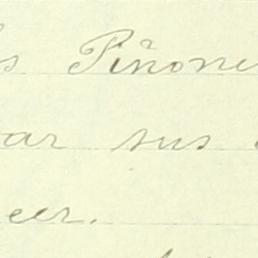 s Piñone
ar sus
eer.